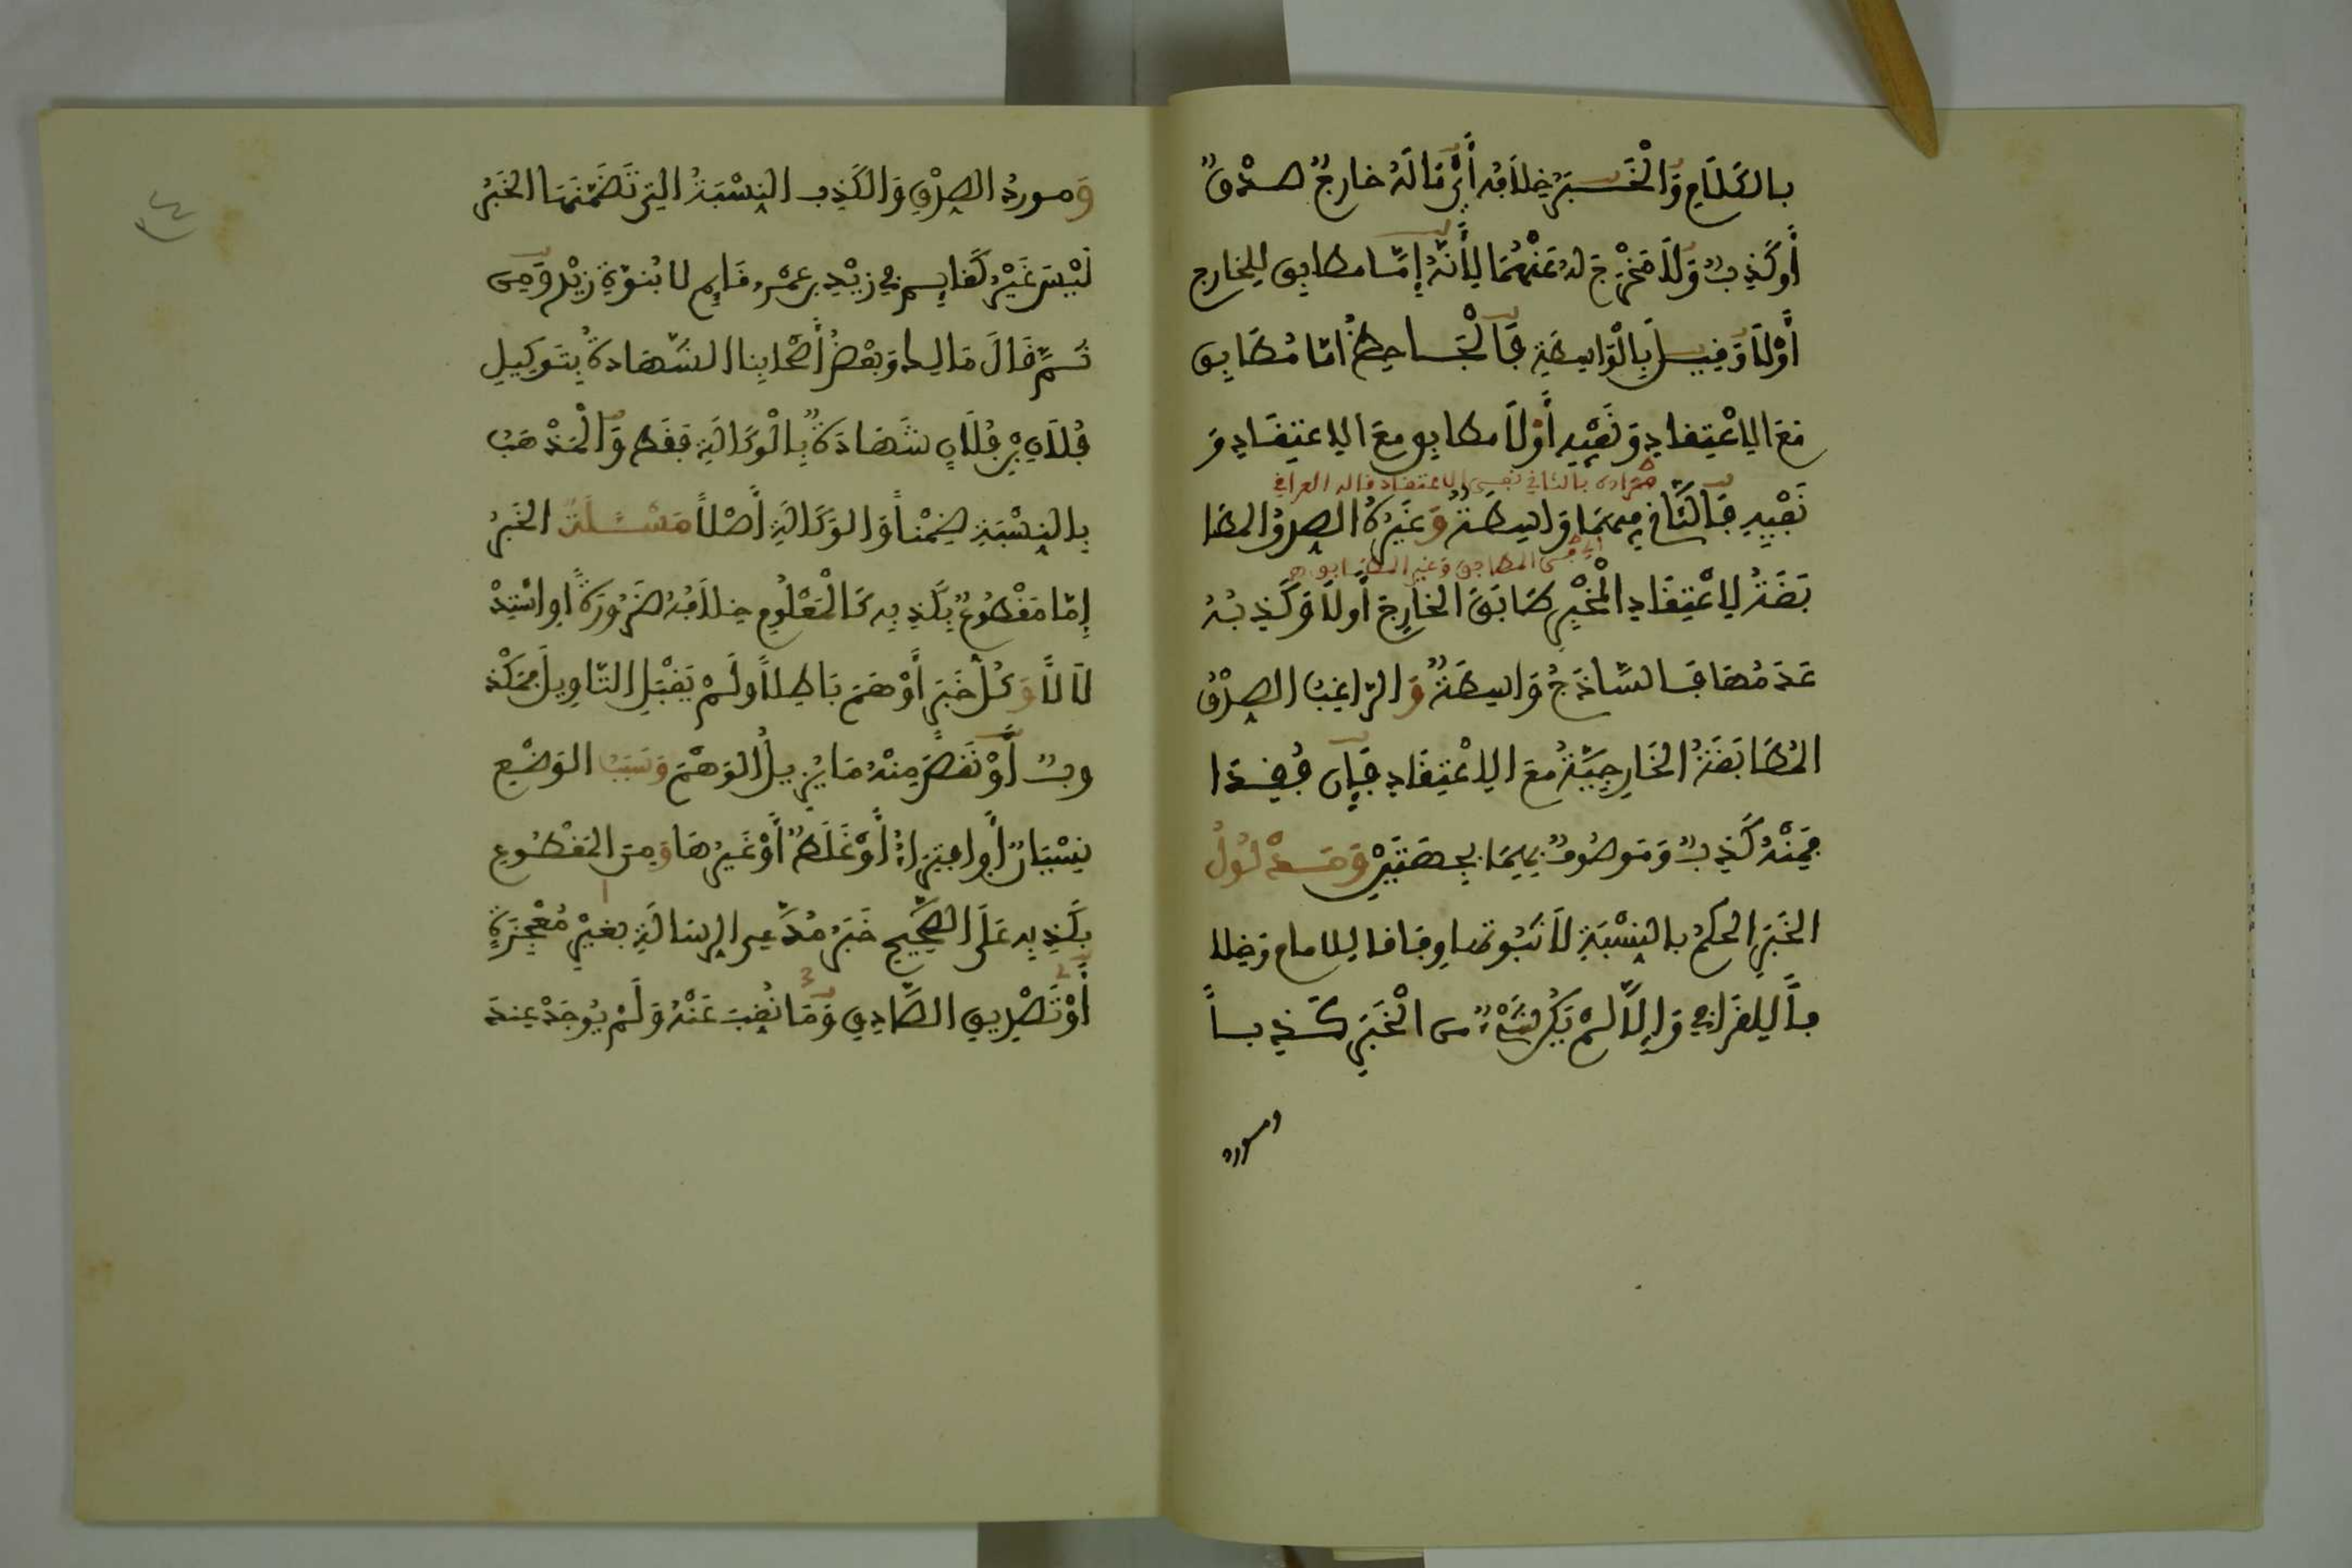 بالكلَام وَالْخَبَر خِلَافه أَيْ مَا لَهُ خارجٌ صدْقٌ
أَو كَذِبٌ وَلَا مَخْرَجَ له عَنْهُمَا لِأَنَّهُ إمَّا مطابق لِلخارج
أَوْلَا وَقِيلَ بِالْوَاسِطَةِ فَالْجَاحِظُ امّا مُطَابِق
مَعَ الِاعْتِقادِ وَنَفْيِهِ أَوْلَا مطابق مع الاعتِقَادِ وَ
مراده بالثاني نفي الاعتقاد قاله العراقي
نَفْيِهِ فَالثَّانِي فِيهِمَا وَاسِطَةٌ وَغَيْرُهُ الصِدقُ المطَا
اي في المطابق وغير المطابق
بَقَةُ لِاعْتِقَادِ الْمُخْبِرِ طَابَقَ الخَارِجَ أَولَا وَكَذِبُهُ
عَدَمُهَا فَالسَّاذَجُ وَاسِطَةٌ وَالرّاغِبُ الصِدْقُ
المُطَابَقَةُ الخَارِجِيَّةُ مَعَ الِاعْتِقَادِ فَإِن فُقِدَا
فَمِنْهُ كَذِبٌ وَمَوصُوفٌ بِهِمَا بِجِهَتَيْنِ وَمَدْلُولُ
الخَبَرِ الحكمُ بالنِسْبَةِ لَا ثبُوتها وِفَاقا للامام وَخِلا
فاً لِلقَرَافِي وَإِلَّا لَمْ يَكُن شَيْءٌ من الْخَبَرِ كَذِباً
ومورد
وَمورِدُ الصِدْقِ وَالكَذِب النِسْبَةُ التِي تَضَمَّنَهَا الخَبَرُ
لَيْسَ غَيْرُ كَقايِم في زيْدِ بن عمْرٍو قَايِم لا بُنوّةِ زيْد وَمِن
ثَمَّ قَالَ مَالِك وَبَعْضُ أَصْحَابِنا الشَهَادةُ بِتَوكِيلِ
فُلَانِ بْنِ فُلَانٍ شَهَادَةٌ بِالْوكَالَةِ فَقَط وَالْمَذْهَبُ
بِالنِسْبَةِ ضِمْناً وَالوَكَالَةِ أَصْلاً مَسْئلَة الخَبَرُ
إِمّا مَقْطُوعٌ بِكَذِبِهِ كَالْمَعْلُومِ خِلَافُهُ ضَرُورَةً اوِ اسْتِدْ
لَالاً وَكلّ خَبَرٍ أَوْهَمَ بَاطِلاً ولَمْ يَقْبَلِ التّاوِيلَ فَمَكْذ
وبٌ أَوْ نَقَصَ مِنْهُ مَا يُزِيلُ الوَهْمَ وَسَبَبُ الوَضْعِ
نِسْيَانٌ أَوِ افتِرَاءٌ أَوْ غَلَطٌ أَوْ غَيْرُهَا وَمِنَ المَقْطُوعِ
بِكَذِبِهِ عَلَى الصَّحِيحِ خَبَرُ مُدَّعِي الرِسَالَةِ بغيْرِ مُعْجِزَةٍ
أَوْ تَصْدِيقِ الصَّادِقِ وَمَا نُقِبَ عَنْهُ وَلَمْ يُوجَدْ عِندَ